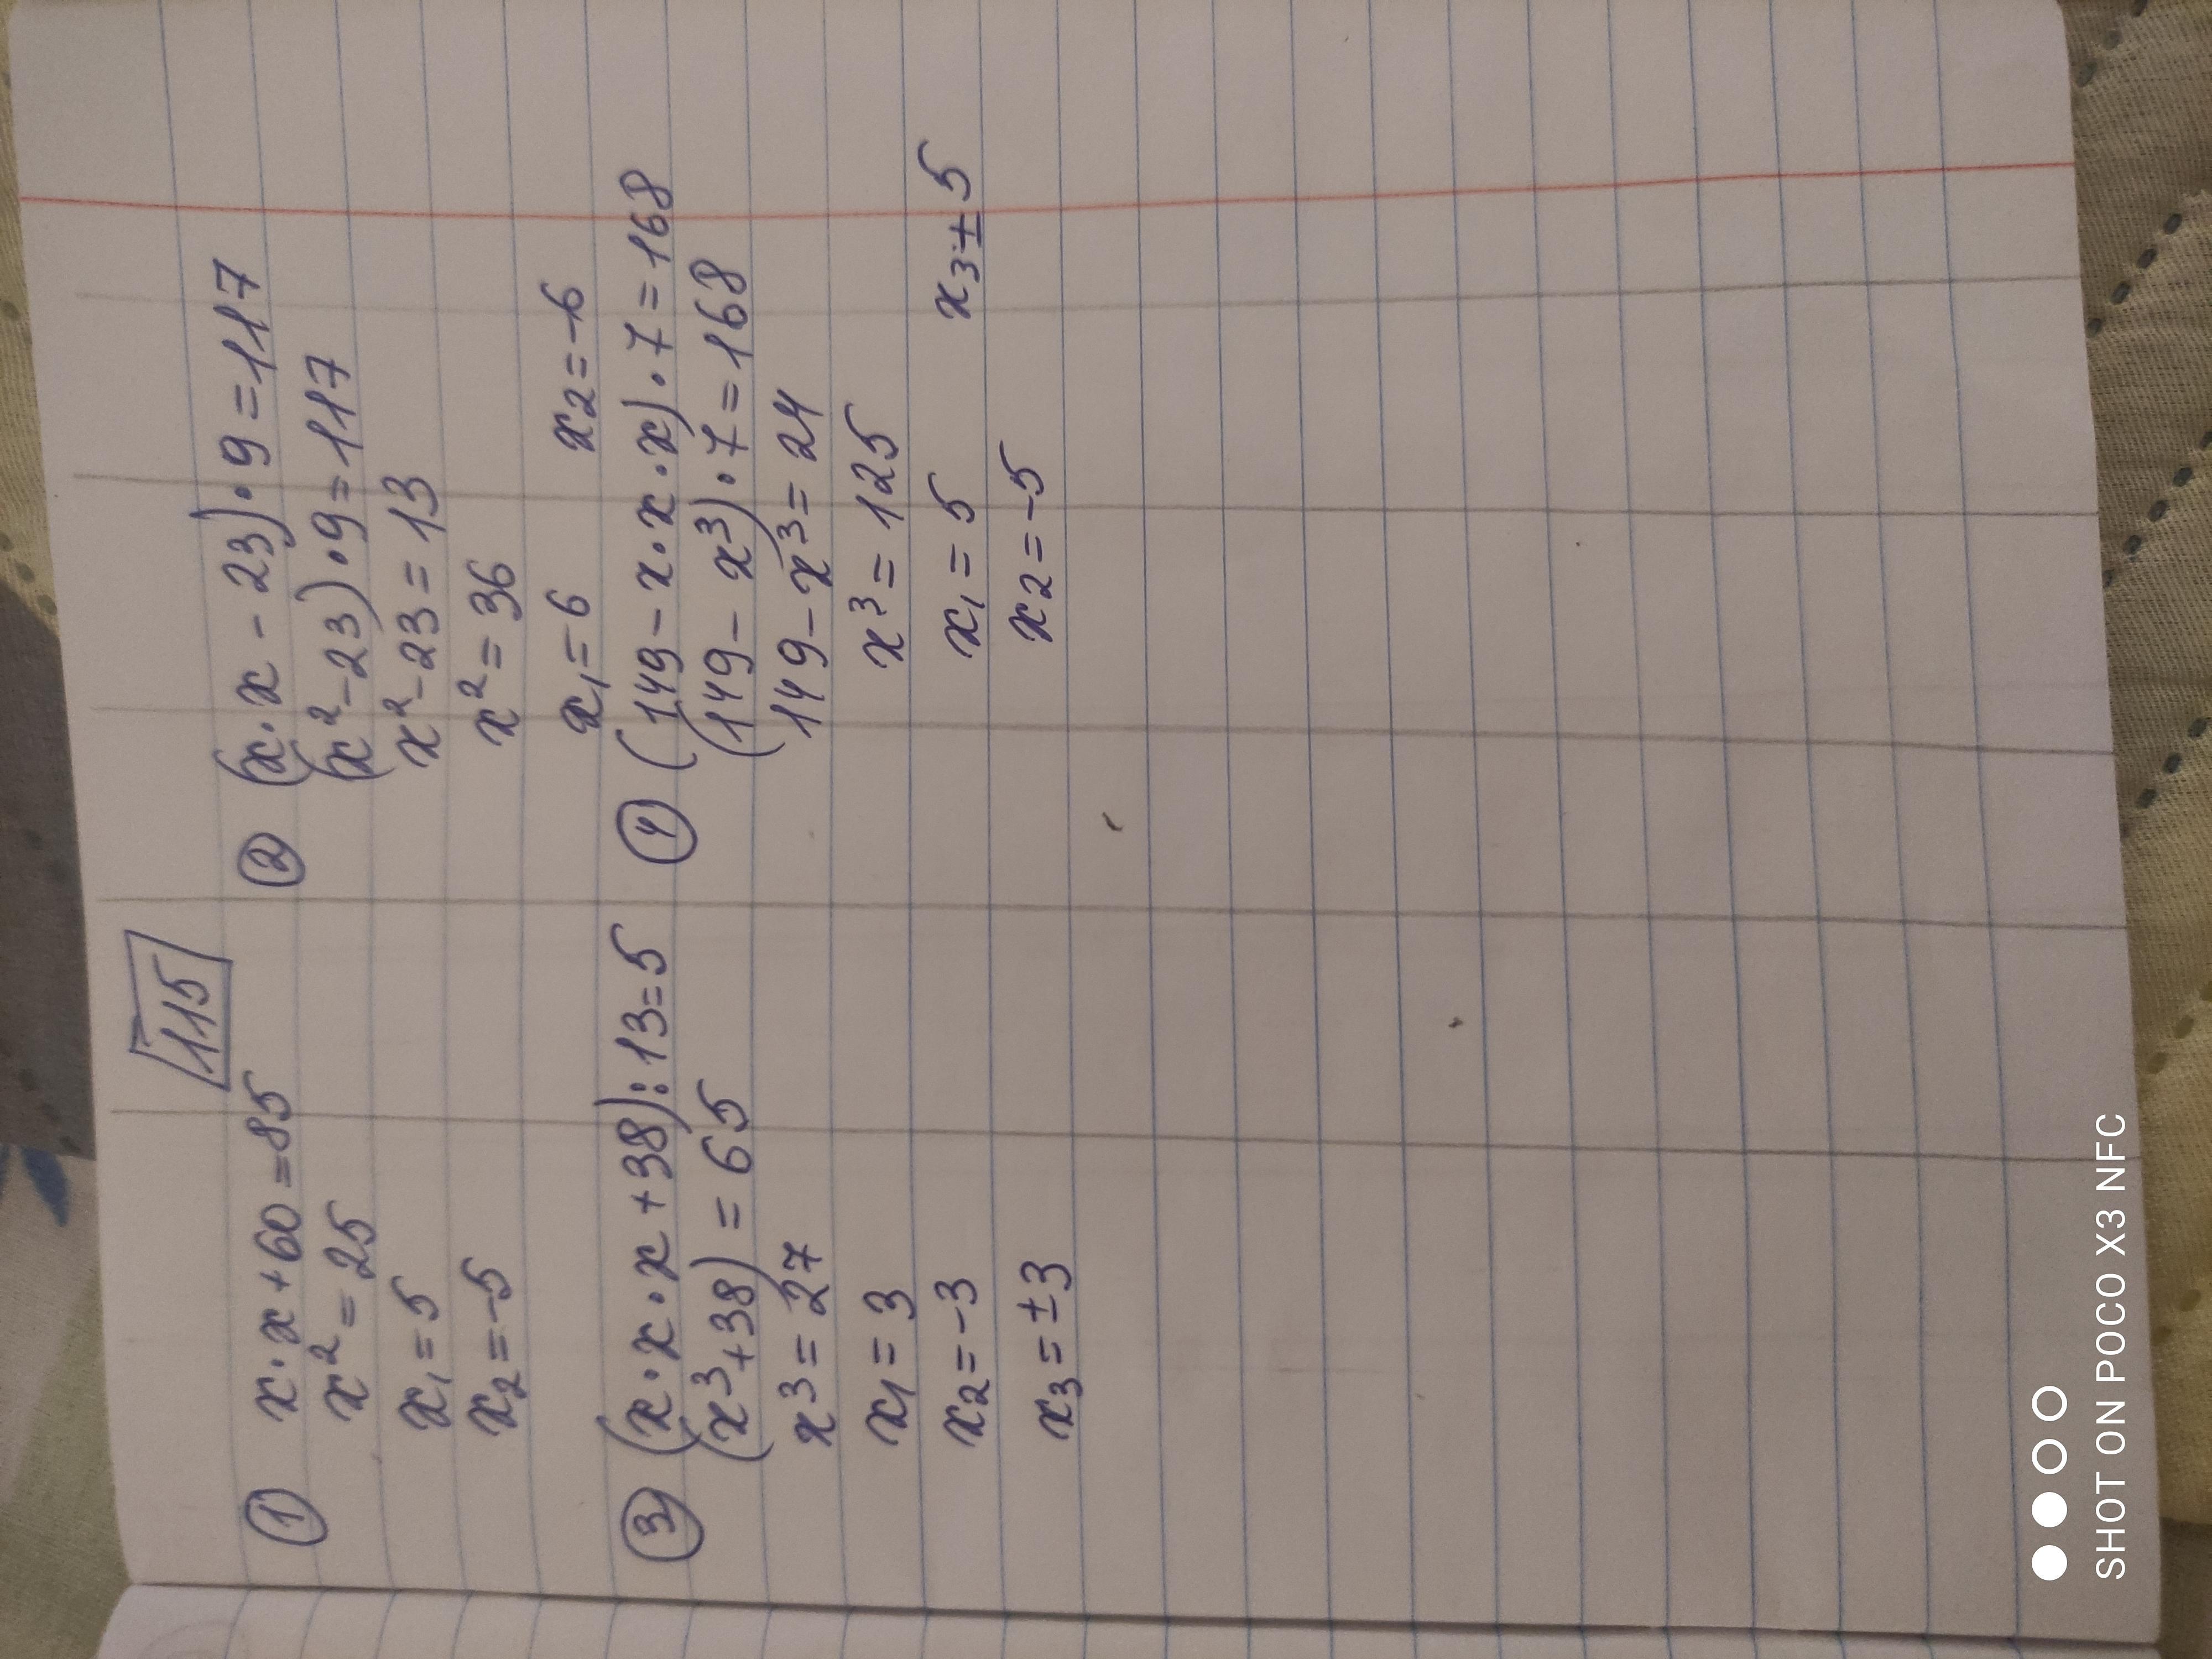 115
① x·x+60=85
x²=25
x₁=5
x₂=-5
② (x·x-23)·9=117
(x²-23)·9=117
x²-23=13
x²=36
x₁=6 x₂=-6
③ (x·x·x+38):13=5
(x³+38)=65
x³=27
x₁=3
x₂=-3
x₃=±3
④ (149-x·x·x)·7=168
(149-x³)·7=168
149-x³=24
x³=125
x₁=5 x₃±5
x₂=-5
SHOT ON POCO X3 NFC